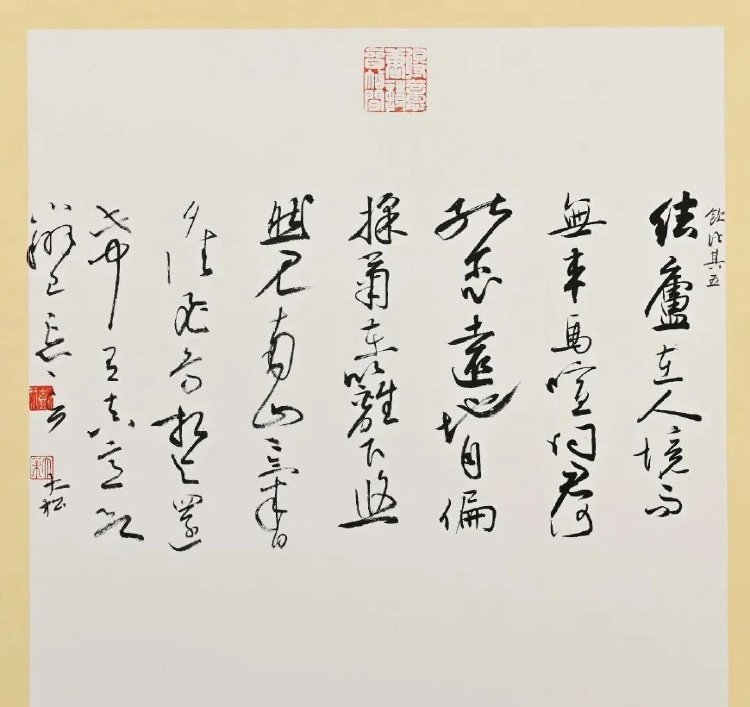 飲酒其五
結廬在人境而
無車馬喧问君何
能尔心遠地自偏
採菊東籬下悠
然見南山山氣日
夕佳飛鳥相与還
此中有真意欲
辨已忘言